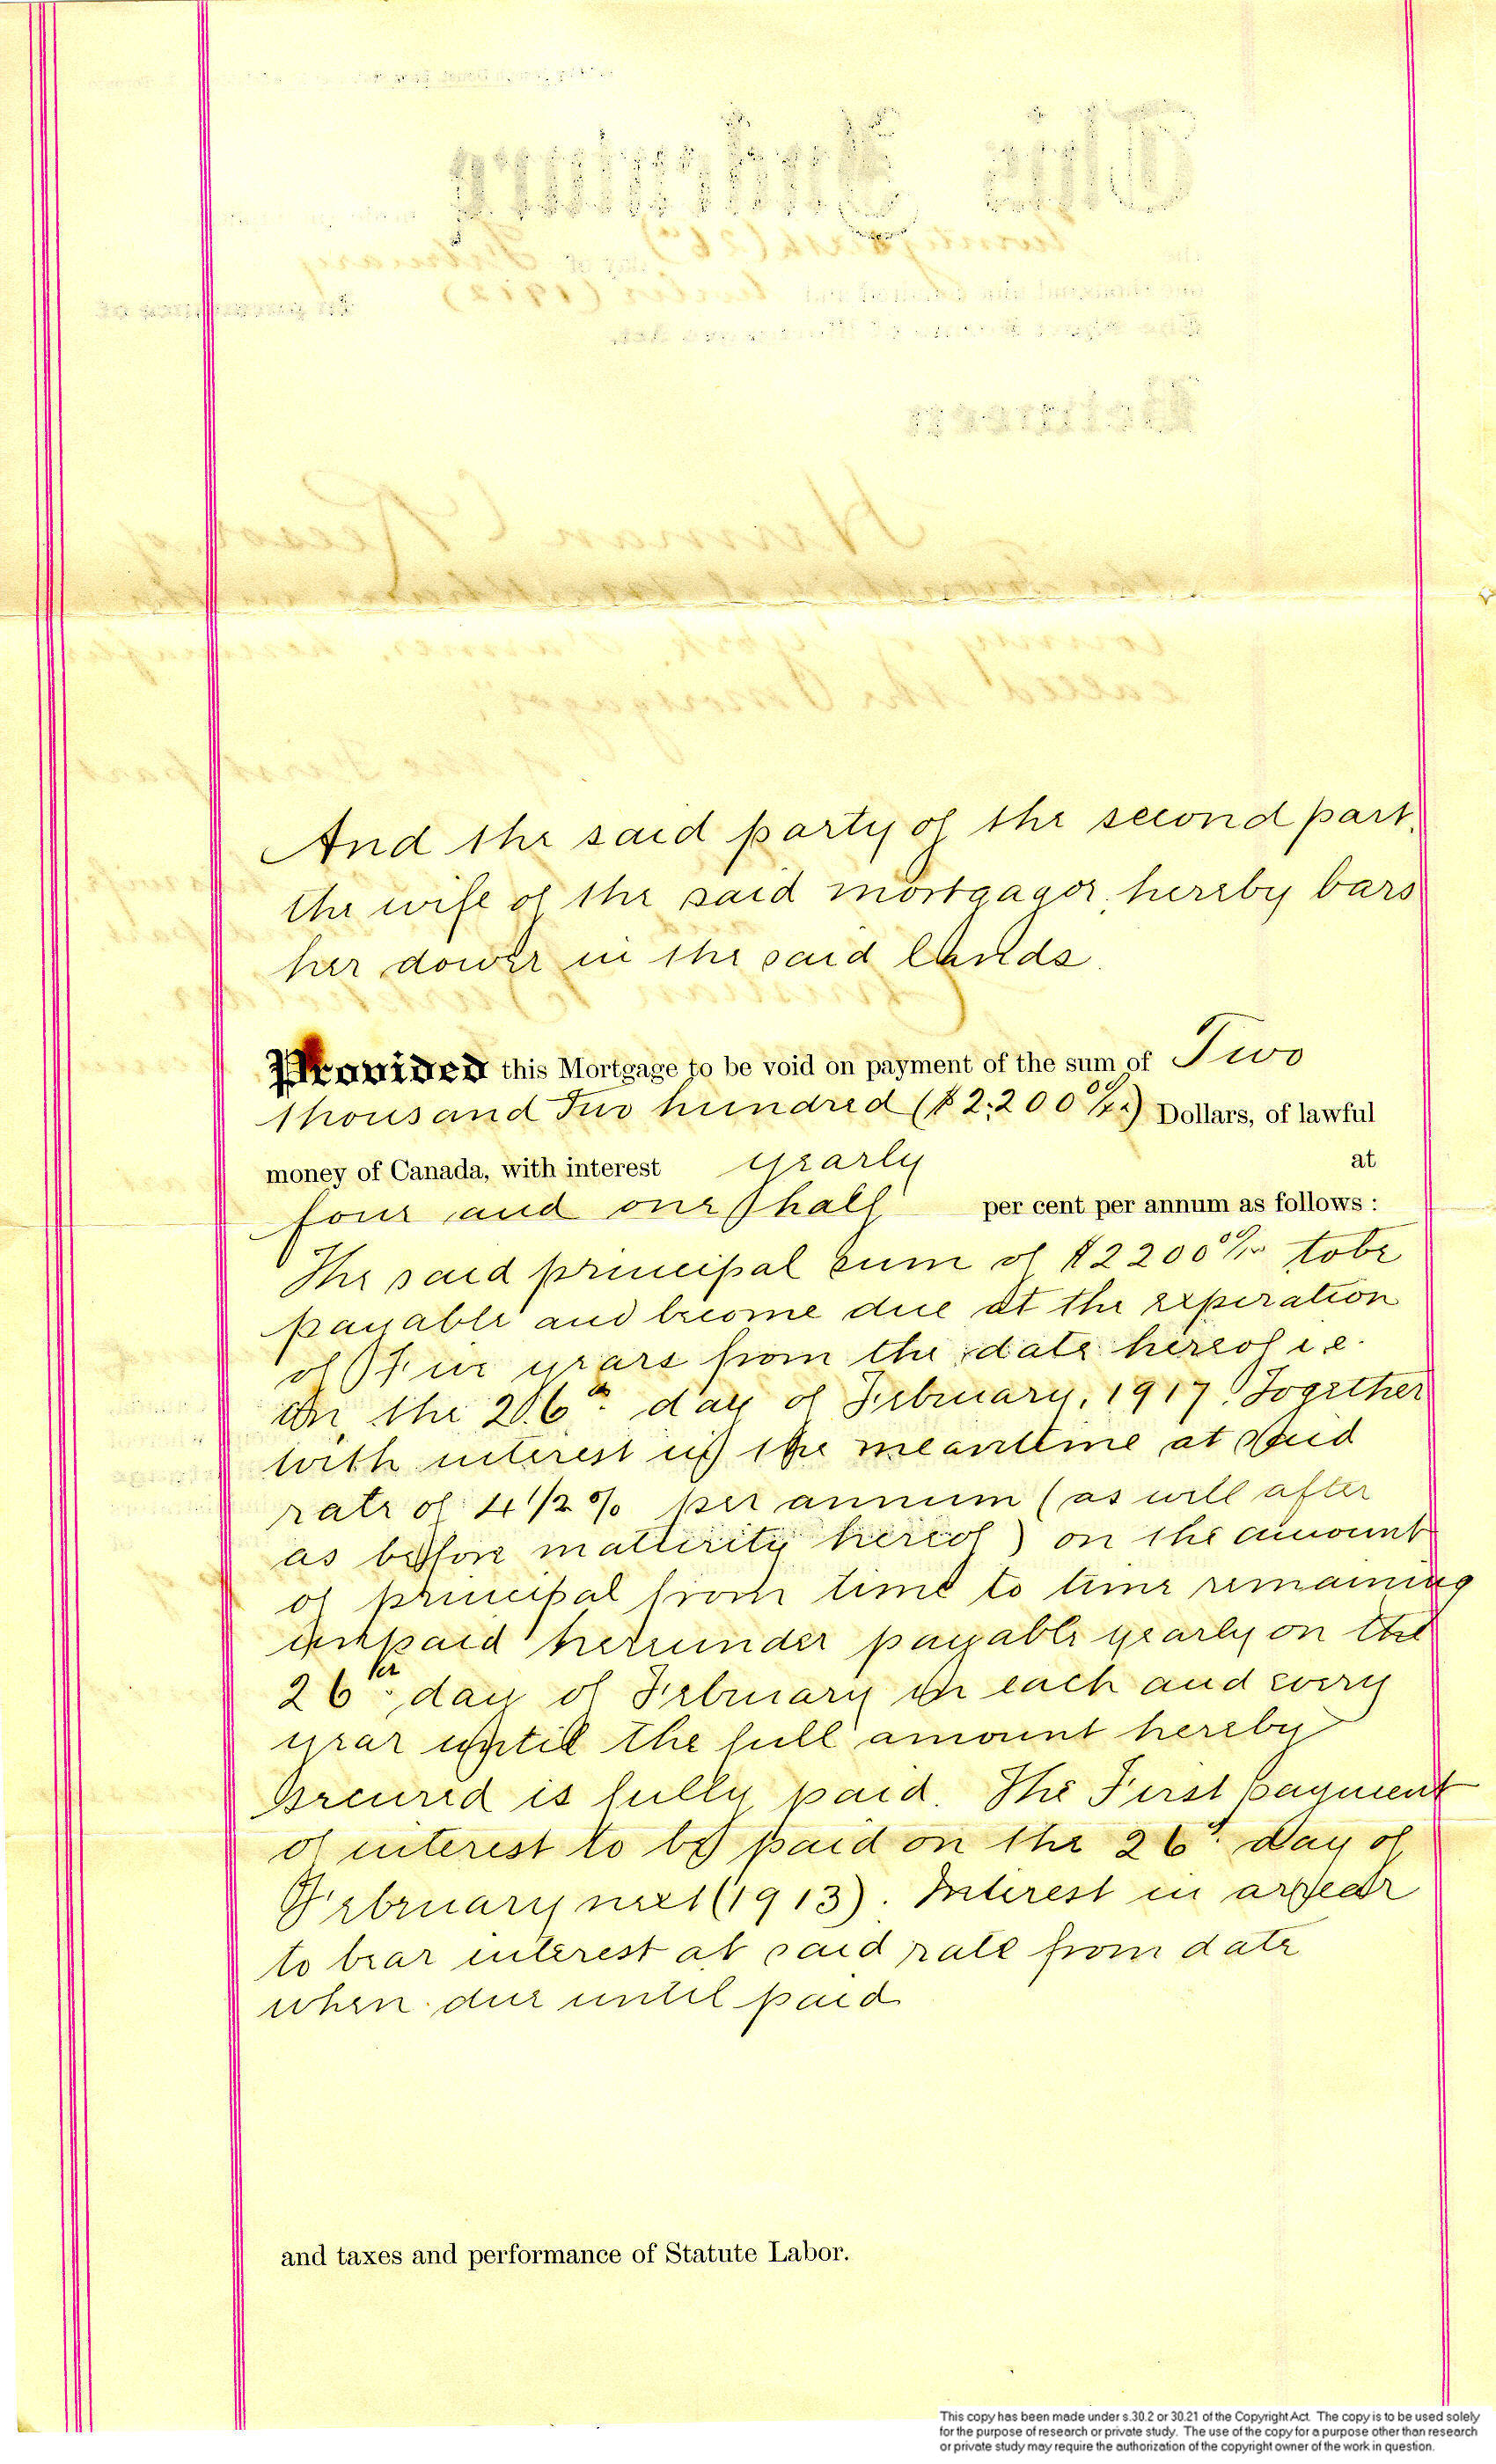 And the said party of the second part,
the wife of the said mortgagor, hereby bars
her dower in the said lands.
Provided this Mortgage to be void on payment of the sum of Two
thousand Two hundred ($2,200 00/100) Dollars, of lawful
money of Canada, with interest yearly at
four and one half per cent per annum as follows :
The said principal sum of $2200 00/100 to be
payable and become due at the expiration
of Five years from the date hereof i.e.
on the 26th day of February, 1917. Together
with interest in the meantime at said
rate of 4 1/2 % per annum (as well after
as before matturity hereof) on the amount
of principal from time to time remaining
unpaid hereunder payable yearly on the
26th day of February in each and every
year until the full amount hereby
secured is fully paid. The First payment
of interest to be paid on the 26th day of
February next (1913). Interest in arrear
to bear interest at said rate from date
when due until paid
and taxes and performance of Statute Labor.
This copy has been made under s.30.2 or 30.21 of the Copyright Act. The copy is to be used solely
for the purpose of research or private study. The use of the copy for a purpose other than research
or private study may require the authorization of the copyright owner of the work in question.